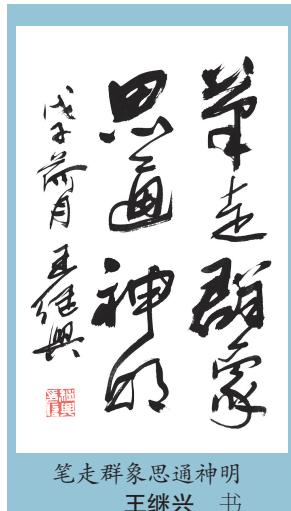 筆走群象
思通神明
戊子荷月 王继興
笔走群象思通神明
王继兴 书